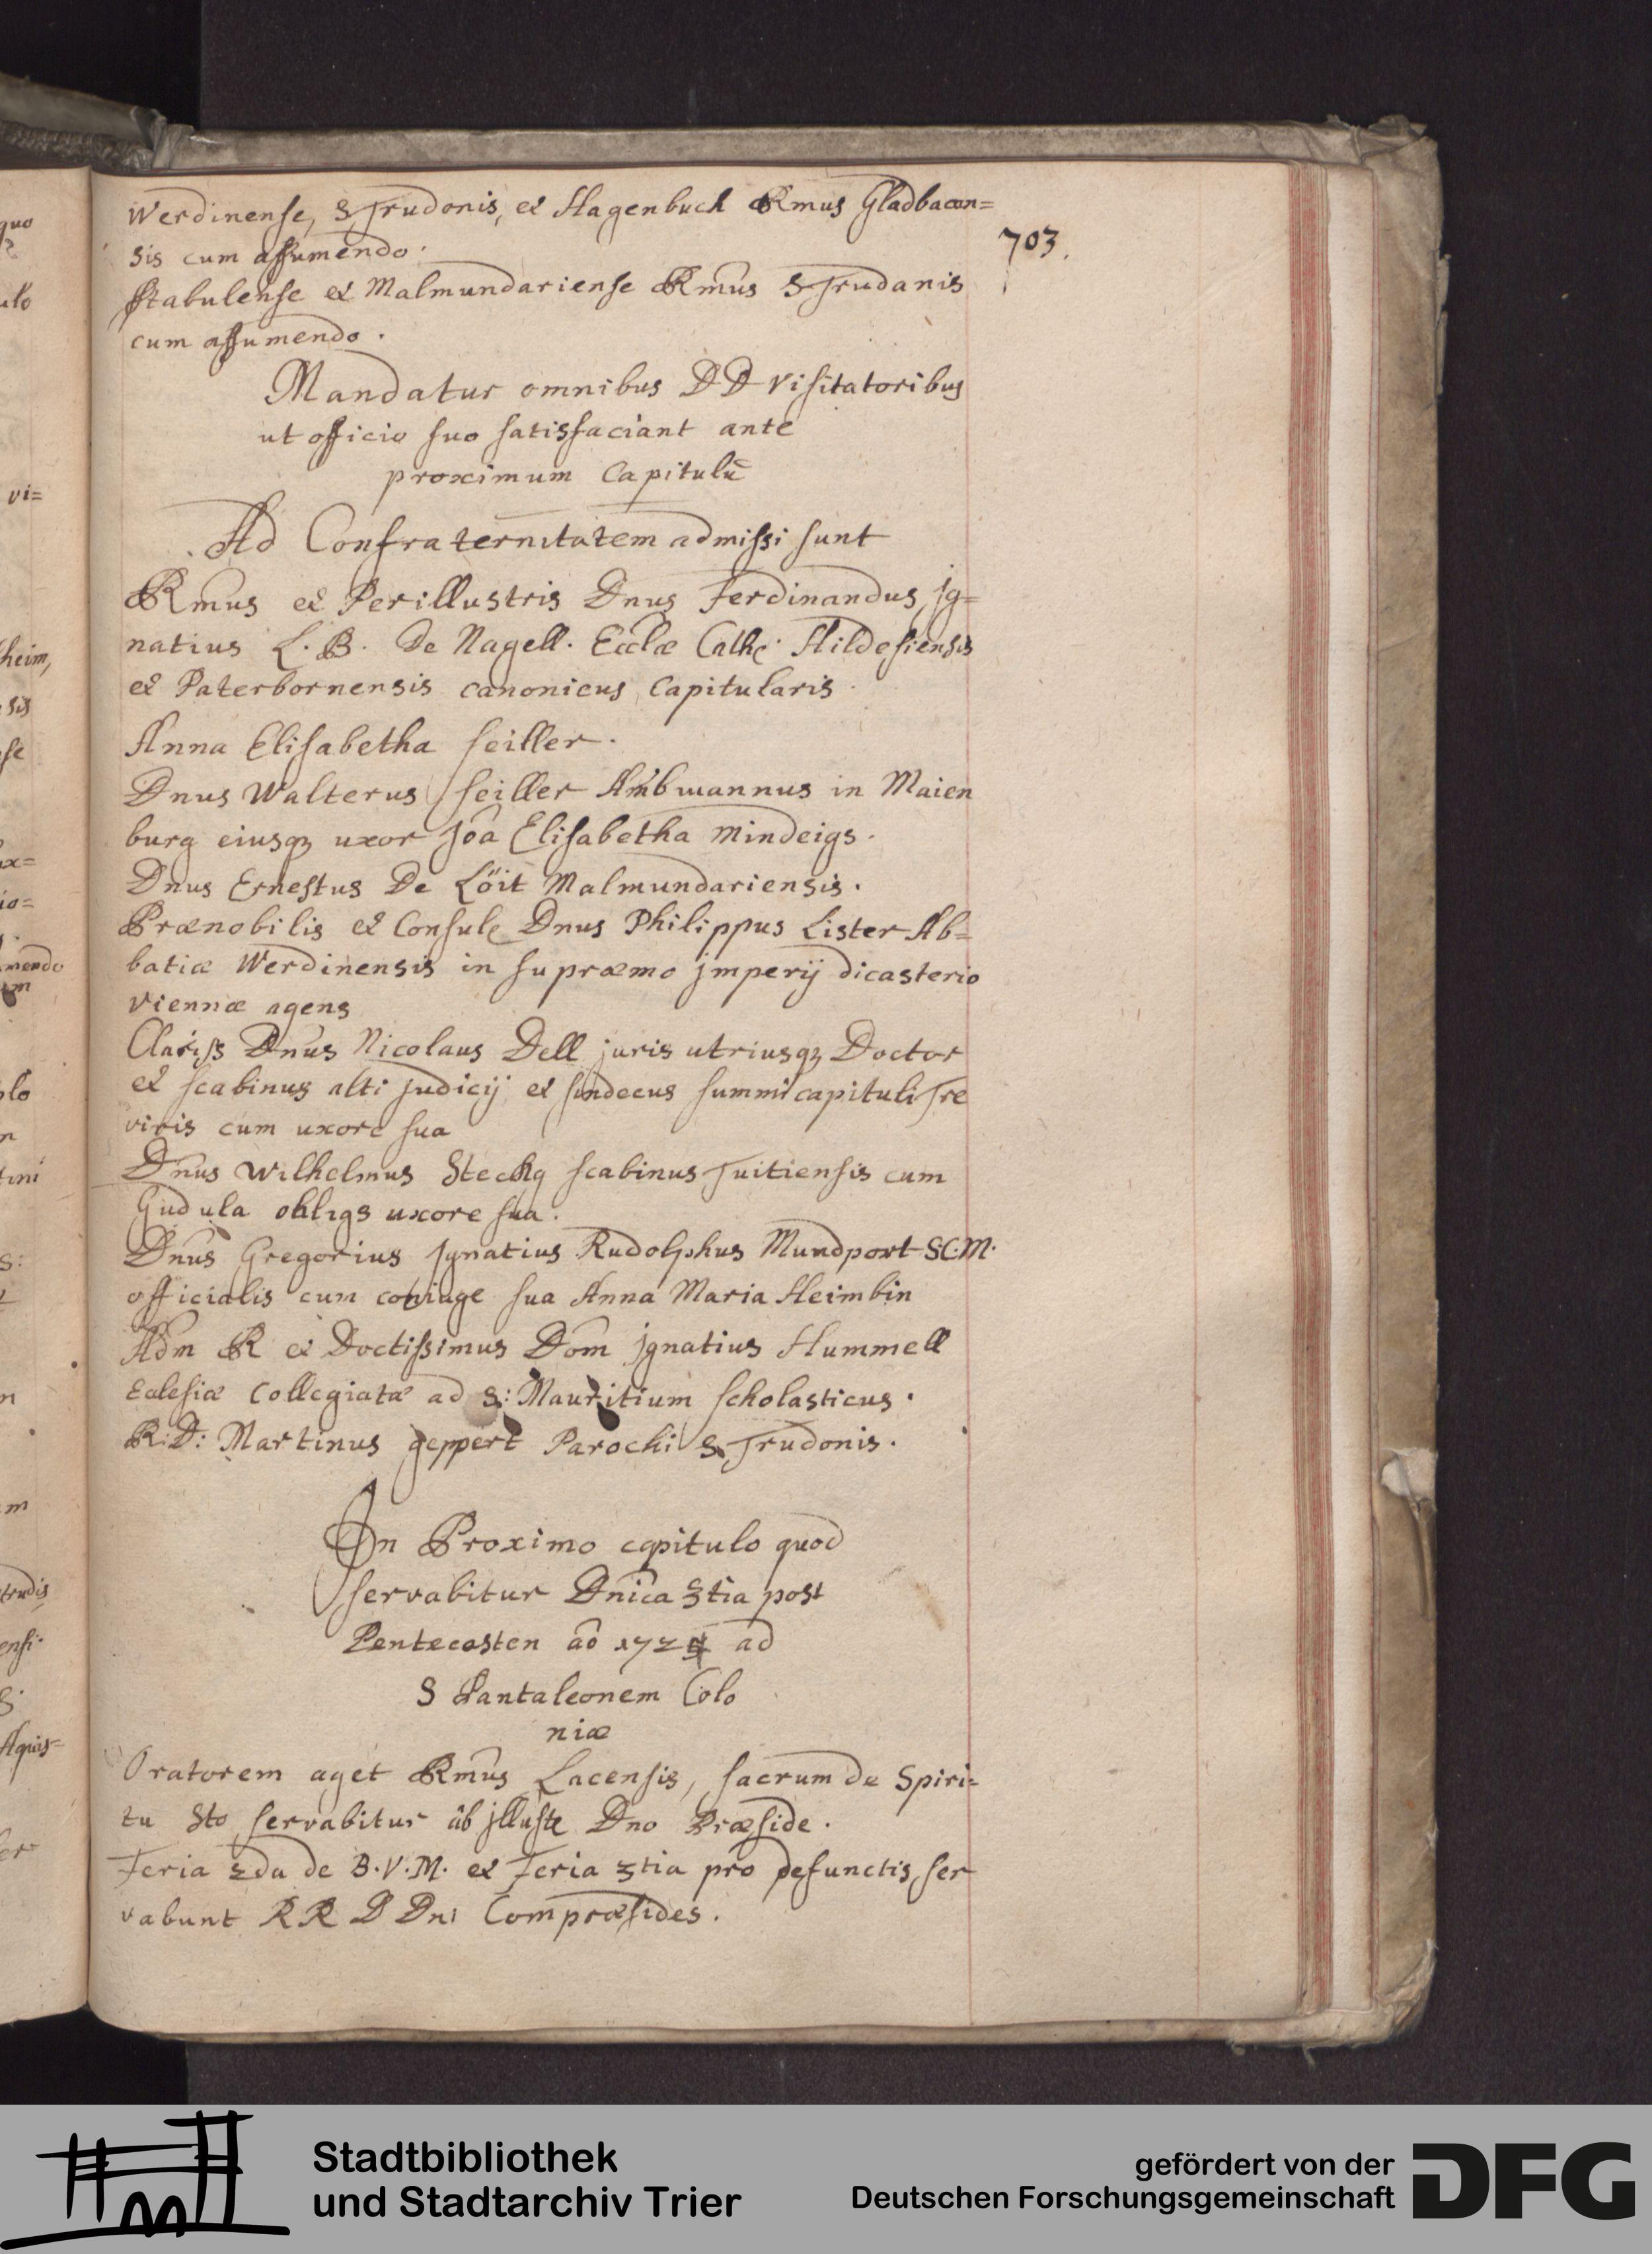 Werdinense, S Trudonis, et Hagenbuch Rmus Gladbacen=
sis cum assumendo.
703.
Stabulense et Malmundariense Rmus S Trudanis
cum assumendo.
Mandatur omnibus DD Visitatoribus
ut officio suo satisfaciant ante
proximum Capitulū
Ad Confraternitatem admissi sunt
Rmus et Perillustris Dnus Ferdinandus Jg=
natius L. B. De Nagell. Ecclæ Cath: Hildesiensis
et Paterbornensis canonicus Capitularis
Anna Elisabetha seiller.
Dnus Walterus seiller Ambmannus in Maien
burg eiusq uxor Joa Elisabetha Mindeigs.
Dnus Ernestus De Löit Malmundariensis.
Prænobilis et Consul Dnus Philippus Lister Ab=
batiæ Werdinensis in supræmo jmperij dicasterio
Viennæ agens
Clariss Dnus Nicolaus Dell juris utriusq Doctor
et scabinus alti judicij et sindecus summi capituli Tre
viris cum uxore sua
Dnus Wilhelmus scabinus Tuitiensis cum
Gudula ohligs uxore sua.
Dnus Gregorius Jgnatius Rudolphus Mundport S.C.M.
officialis cum coniuge sua Anna Maria Heimbin
Adm R et Doctissimus Dom jgnatius Hummell
Eclesiæ Collegiatæ ad S: Mauritium scholasticus.
R:D: Martinus geppert Parochi S Trudonis.
In Proximo capitulo quod
servabitur Dnica 3tia post
Pentecosten aō 172 ad
S Pantaleonem Colo
niæ
Oratorem aget Rmus Lacensis, sacrum de Spiri=
tu Sto servabitur ab jllust Dno Præside.
Feria 2da de B.V.M. et Feria 3tia pro defunctis ser
vabunt RR D Dni Compræsides.
Stadtbibliothek
und Stadtarchiv Trier
gefördert von der
Deutschen Forschungsgemeinschaft
DFG